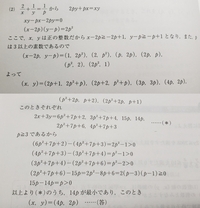 (2) 2/x + 1/y = 1/p から 2py+px=xy
xy-px-2py=0
(x-2p)(y-p)=2p²
ここで、x、yは正の整数だから x-2p≧1-2p, y-p≧1-p となり、また
は3以上の素数であるので
(x-2p, y-p)=(1, 2p²), (2, p²), (p, 2p), (2p, p)
(p², 2), (2p², 1)
よって
(x, y)=(2p+1, 2p²+p), (2p+2, p²+p), (3p, 3p), (4p, 2p),
(p²+2p, p+2), (2p²+2p, p+1)
このときそれぞれ
2x+3y=6p²+7p+2, 3p²+7p+4, 15p, 14p,
2p²+7p+6, 4p²+7p+3
p≧3であるから
(6p²+7p+2)-(4p²+7p+3)=2p²-1>0
(4p²+7p+3)-(3p²+7p+4)=p²-1>0
(3p²+7p+4)-(2p²+7p+6)=p²-2>0
(2p²+7p+6)-15p=2p²-8p+6=2(p-3)(p-1)≧0
15p-14p=p>0
以上より(*)のうち、14pが最小であり、このとき
(x, y)=(4p, 2p) ……(答)